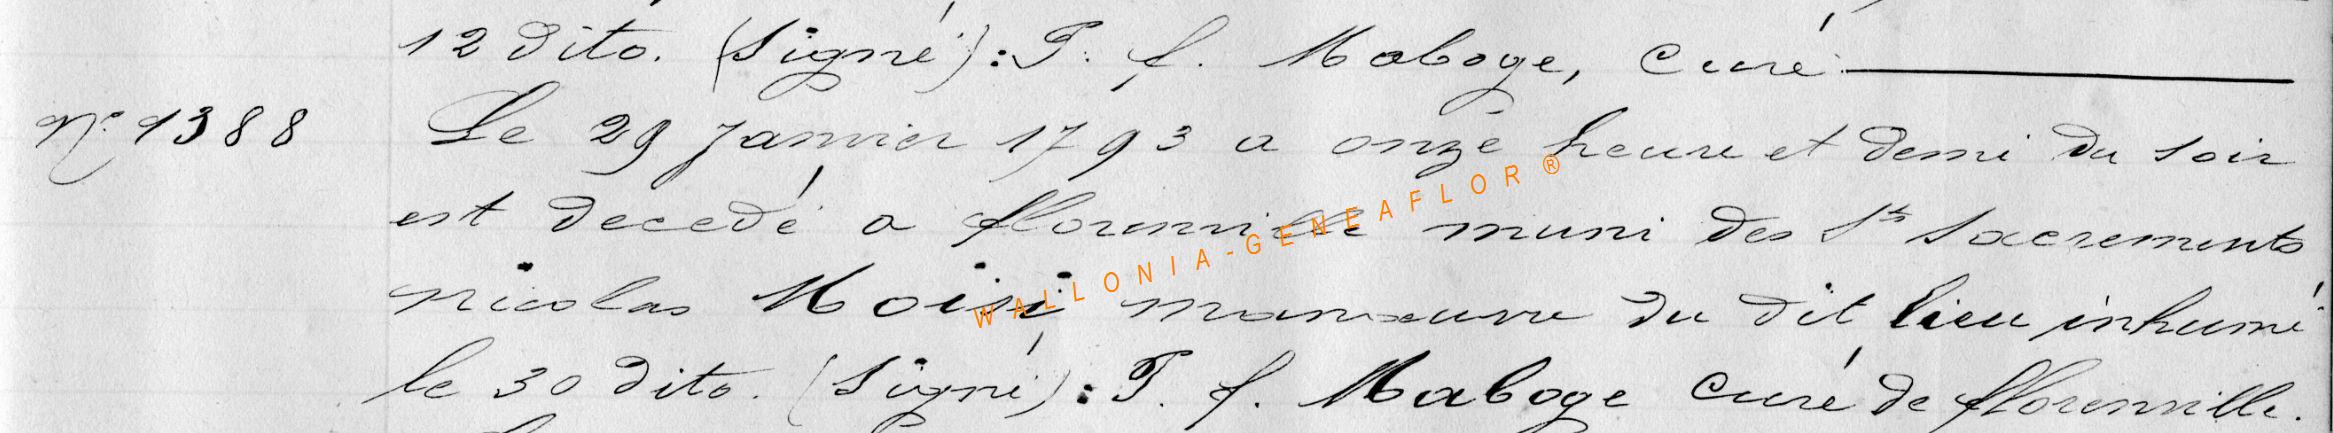 12 dito. (Signé): T. f. Maboge, Curé.
N° 1388 Le 29 Janvier 1793 a onze heure et demi du soir
est decedé a florenville muni des Sts Sacrements
nicolas Moisi manœuvre du dit lieu inhumé
le 30 dito. (Signé): T. f. Maboge Curé de florenville.
WALLONIA-GENEAFLOR®